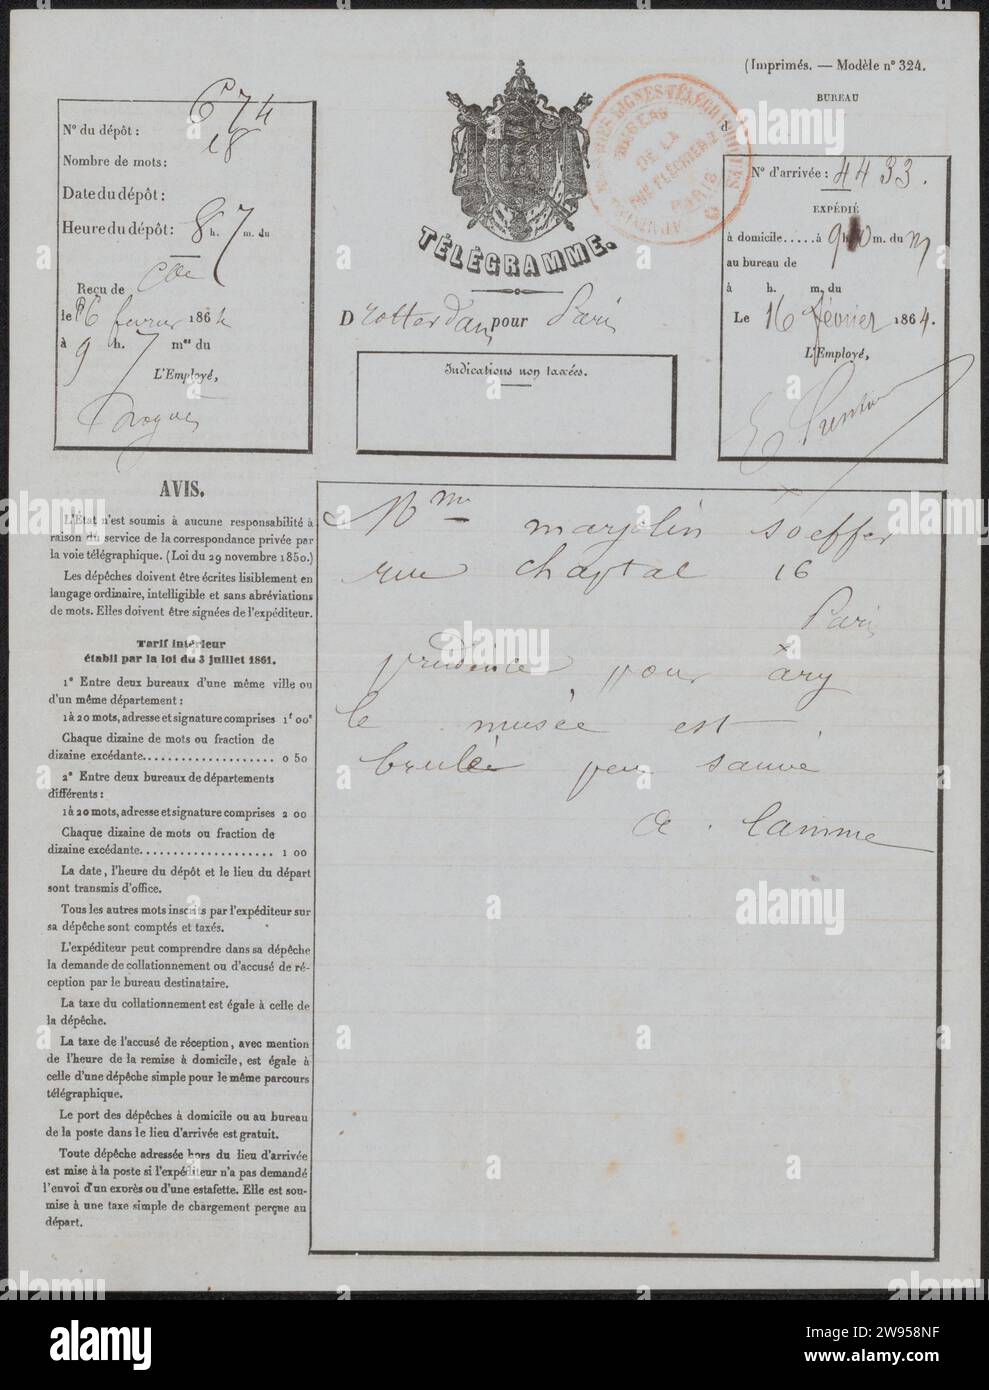 (Imprimés. — Modèle n° 324.
BUREAU
d
N° du dépôt : 674
Nombre de mots : 18
Date du dépôt :
Heure du dépôt : 8 h. 7 m. du
Reçu de
le 16 fevrier 1864
à 9 h. 7 mes du
L'Employé,
TÉLÉGRAMME.
D rotterdam pour Paris
Indications non taxées.
DES LIGNES TÉLÉGRAPHIQUES
BUREAU
DE LA
RUE FLÉCHIER
PARIS
N° d'arrivée : 4433.
EXPÉDIÉ
à domicile.....à 9h 10 m. du m
au bureau de
à h. m. du
Le 16 février 1864.
L'Employé,
AVIS.
L'État n'est soumis à aucune responsabilité à
raison du service de la correspondance privée par
la voie télégraphique. (Loi du 29 novembre 1850.)
Les dépêches doivent être écrites lisiblement en
langage ordinaire, intelligible et sans abréviations
de mots. Elles doivent être signées de l'expéditeur.
Tarif intérieur
établi par la loi du 3 juillet 1861.
1° Entre deux bureaux d'une même ville ou
d'un même département :
1 à 20 mots, adresse et signature comprises 1f 00c
Chaque dizaine de mots ou fraction de
dizaine excédante.................. 0 50
2° Entre deux bureaux de départements
différents :
1 à 20 mots, adresse et signature comprises 2 00
Chaque dizaine de mots ou fraction de
dizaine excédante.................. 1 00
La date, l'heure du dépôt et le lieu du départ
sont transmis d'office.
Tous les autres mots inscrits par l'expéditeur sur
sa dépêche sont comptés et taxés.
L'expéditeur peut comprendre dans sa dépêche
la demande de collationnement ou d'accusé de ré-
ception par le bureau destinataire.
La taxe du collationnement est égale à celle de
la dépêche.
La taxe de l'accusé de réception, avec mention
de l'heure de la remise à domicile, est égale à
celle d'une dépêche simple pour le même parcours
télégraphique.
Le port des dépêches à domicile ou au bureau
de la poste dans le lieu d'arrivée est gratuit.
Toute dépêche adressée hors du lieu d'arrivée
est mise à la poste si l'expéditeur n'a pas demandé
l'envoi d'un exprès ou d'une estafette. Elle est sou-
mise à une taxe simple de chargement perçue au
départ.
Mme marjolin soeffer
rue chaptal 16
Paris
prudence pour ary
le musée est
brulée peu sauvé
a. lamme
alamy
2W958NF